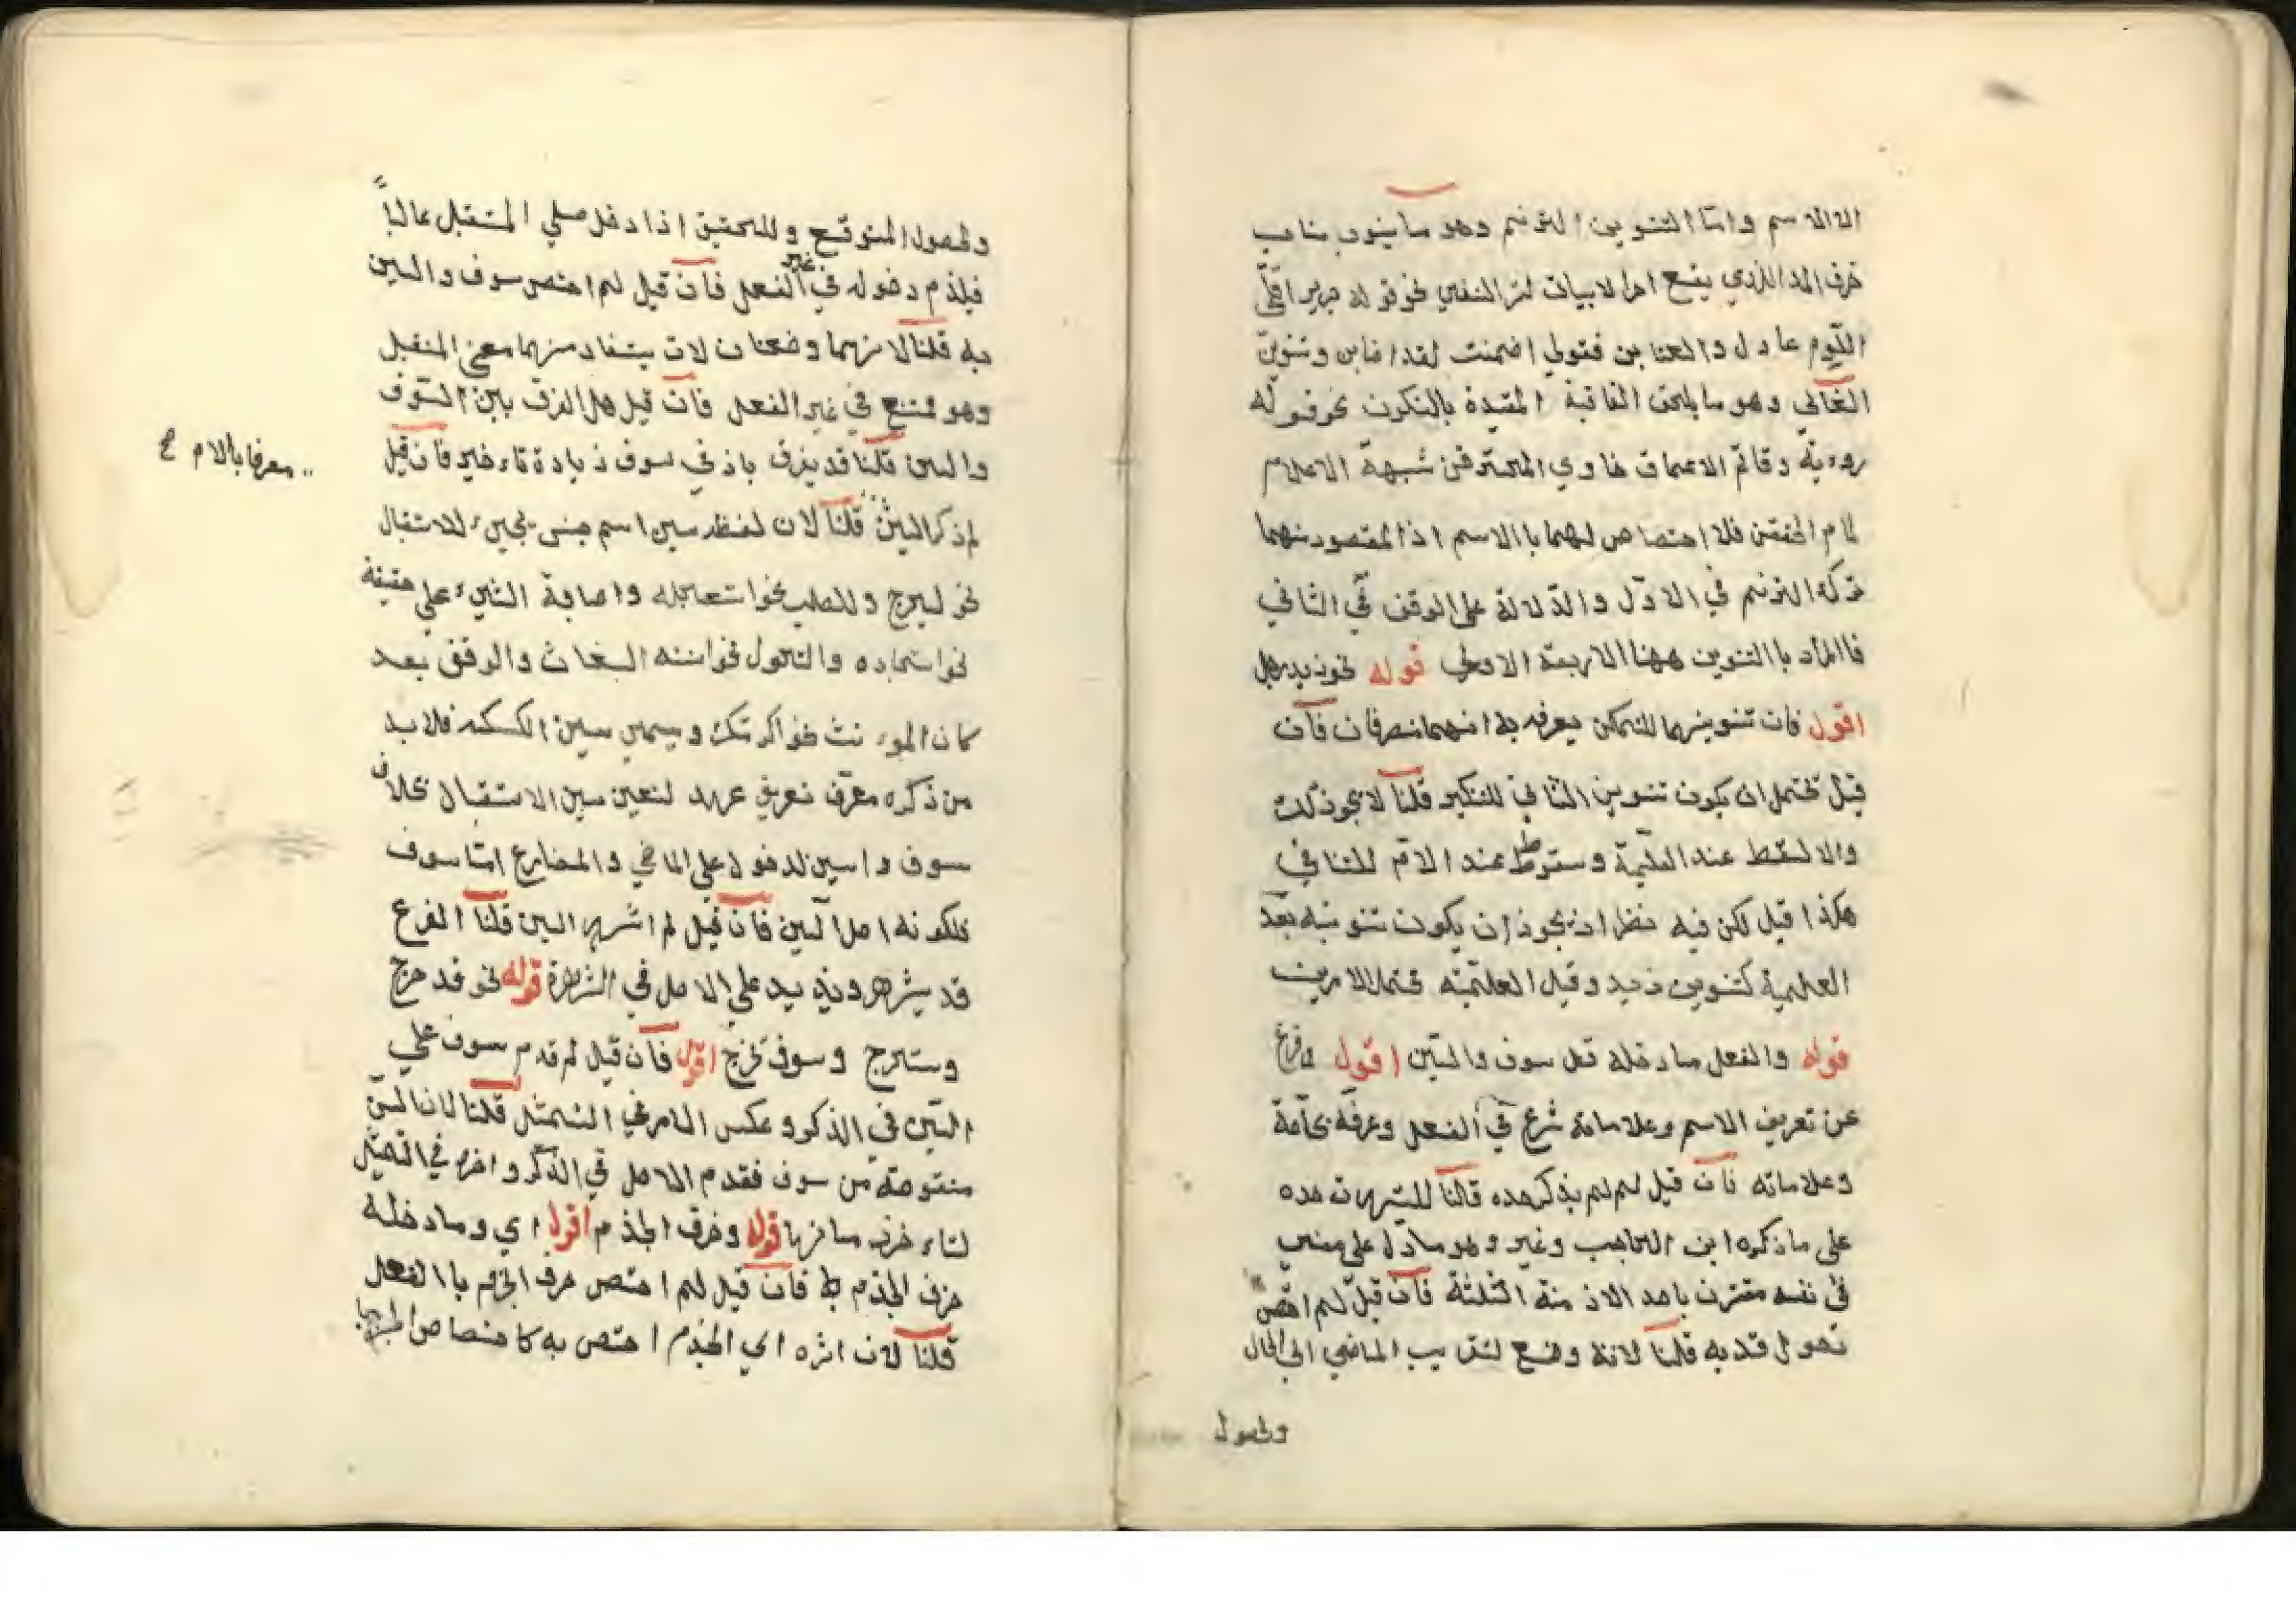 الا الاسم وامّا التنوين الترنم وهو ما ينوب مناب
حرف المد الذي يقع اخر الابيات نحو قوله جرير اقلّي
اللّوم عاذل والعتابن فقولي اضمنت لقد اصابن وتنوين
الغالي وهو ما يلحق القافية المقيدة بالسكون نحو قوله
روءبة وقاتم الاعماق خاوي المخترقن شبهة الاعلام
لماع الخفقن فلا اختصاص لهما باالاسم اذ المقصود منهما
ترك الترنم في الاوّل والدّلالة على الوقف في الثاني
فاالمراد باالتنوين ههنا الاربعة الاولي قوله نحو زيد رجل
اقول فان تنوينهما للتمكن يعرف به انهما منصرفان فان
قيل تحتمل ان يكون تنوين الثاني للتنكير قلنا لا يجوز ذلك
والا لسقط عند العلمية وسقوطه عند الاقم للتنافي
هكذا قيل لكن فيه نظر اذ يجوز ان يكون تنوينه بعد
العلمية كتنوين زيد وقبل العلميّة محتمل الامرين
قوله والفعل ما دخله قد سوف والسّين اقول لما فرغ
عن تعريف الاسم وعلاماته شرع في الفعل وعرفه بخاصة
وعلاماته فان قيل لم لم يذكر حده قالنا للشهرت حده
على ما ذكره ابن الحاجب وغيره وهو ما دلّ على معني
في نفسه مقترن باحد الازمنة الثلثة فان قيل لم اختص
دخول قد به قلنا لانه وضع لتقريب الماضي الي الحال
ولحصول
ولحصول المتوقع وللتحقيق اذا دخل علي المستقبل غالباً
فيلزم دخوله في غير الفعل فان قيل لم اختص سوف والسين
به قلنا لانهما وضعتا ن لان يستفاد منهما معني المستقبل
وهو ممتنع في غير الفعل فان قيل هل الفرق بين السّوف
والسين قلنا قد يفرق باذ في سوف زيادة تاءخير فان قيل
لم ذكر السين قلنا لان لفظ سين اسم جنس يجيىء للاستقبال
معرفا باللام ع
نحو ليخرج وللطلب نحو استعاجله واصابة الشيء على حقيقة
نحو استجاده والتحول نحو استنه البغاث والوقف بعد
كان الموء نث نحو اكرمتك ويسمي سين الكسكسه فلا بد
من ذكره معرّف تعريف عهد لتعين سين الاستقبال بخلاف
سوف واسين لدخول علي الماضي والمضارع امّا سوف
فلكونه اصل السين فان قيل لم اشهر السين قلنا الفرع
قد يشهر ويزيد علي الاصل في الشهرة قوله نحو قد خرج
وستخرج وسوف تخرج اقول فان قيل لم قدم سوف علي
السّين في الذكر وعكس الامر في التمثيل قلنا لان السّين
منقوصة من سوف فقدم الاصل في الذّكر واخره في التمثيل
لتاء خره ما نها قوله وحرف الجزم اقول اي وما دخله
حرف الجزم فان قيل لم اختص حرف الجزم باالفعل
قلنا لان اثره اي الجزم اختص به كاختصاص